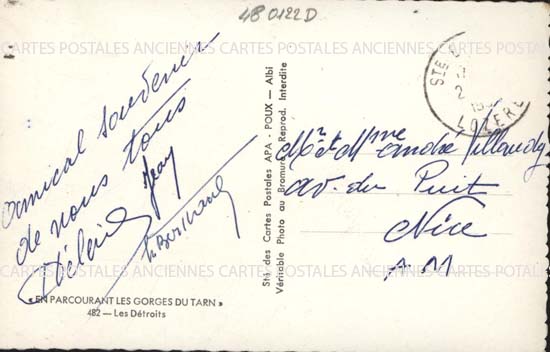 48 0122 D
CARTES POSTALES ANCIENNES CARTES POSTALES ANCIENNES CARTES POSTAL
amical souvenir
de nous tous
Jean
« EN PARCOURANT LES GORGES DU TARN »
482 — Les Détroits
Sté des Cartes Postales APA - POUX — Albi
Véritable Photo au Bromure - Reprod. Interdite
STE
2
LOZERE
Mr et Mme André
av. du Puit
Nice
A M
CARTES POSTALES ANCIENNES CARTES POSTALES ANCIENNES CARTES POSTAL